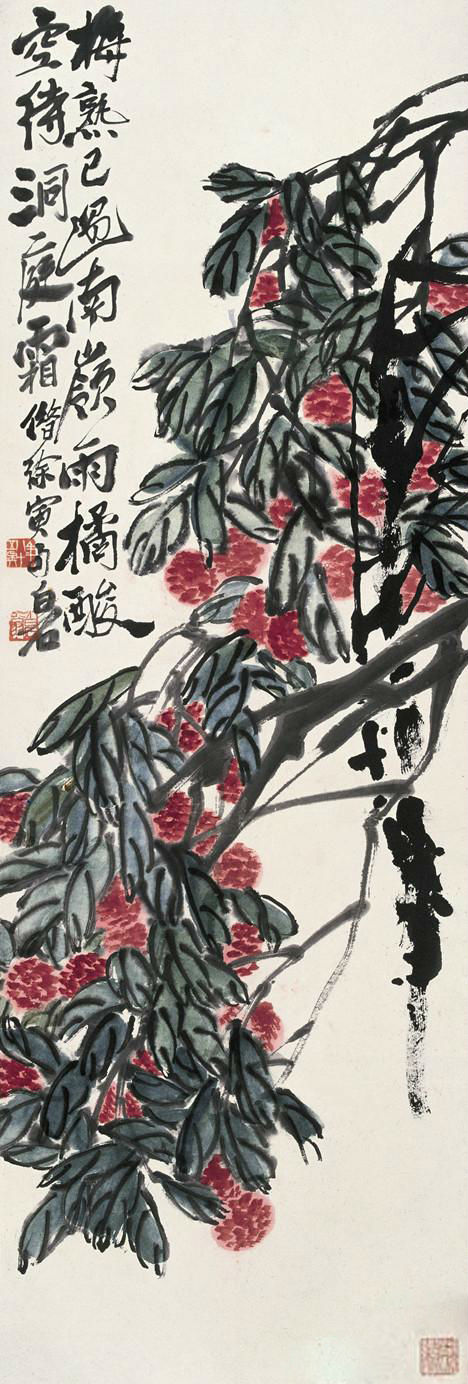 梅熟已過南嶺雨橘酸
空待洞庭霜借徐寅句白石